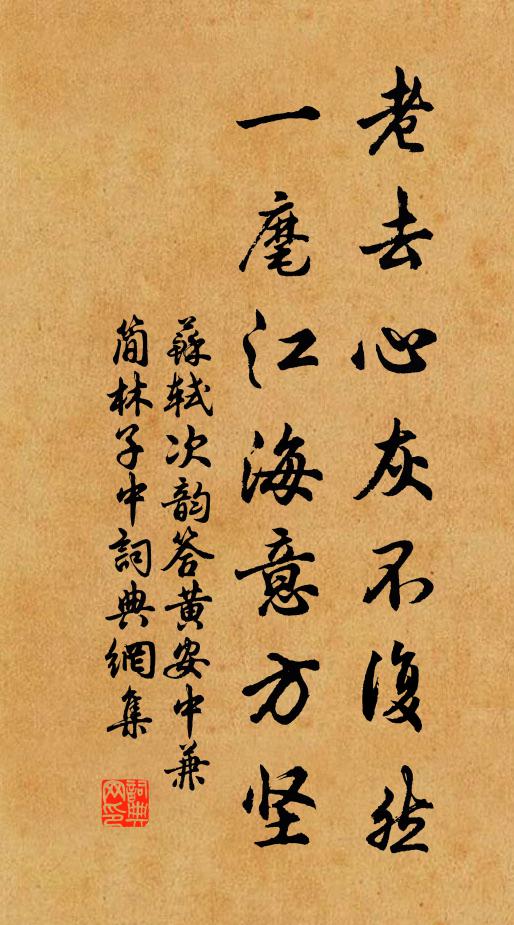 老去心灰不復然
一麾江海意方坚
蘇轼次韵答黄安中兼
简林子中詞典網集
詞典
网印